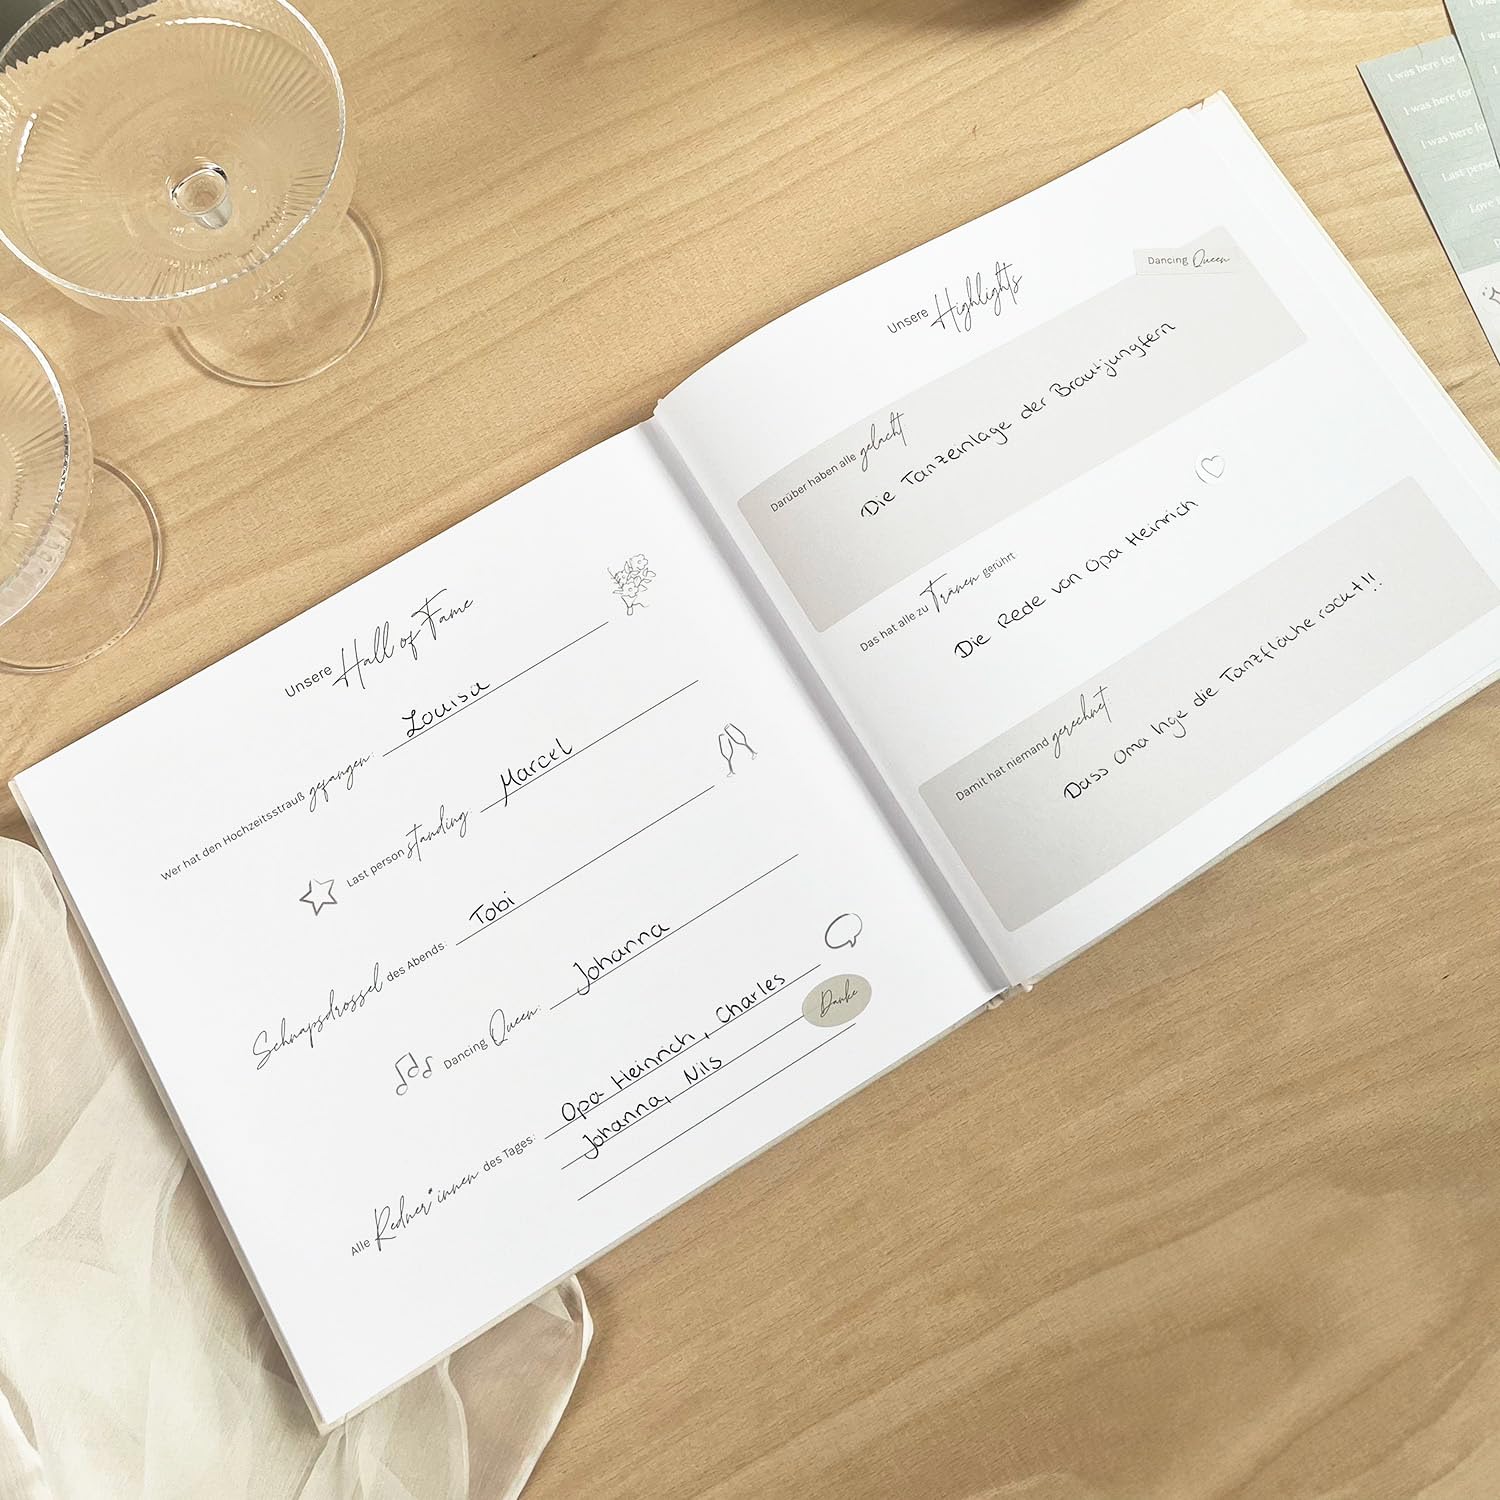 Unsere Hall of Fame
Wer hat den Hochzeitsstrauß gefangen: Louisa
Last person standing: Marcel
Schnapsdrossel des Abends: Tobi
Dancing Queen: Johanna
Alle Redner*innen des Tages: Opa Heinrich, Charles
Johanna, Nils
Danke
Unsere Highlights
Dancing Queen
Darüber haben alle gelacht
Die Tanzeinlage der Brautjungfern
Das hat alle zu Tränen gerührt
Die Rede von Opa Heinrich
Damit hat niemand gerechnet:
Dass Oma Inge die Tanzfläche rockt!!
I was here for
I was here for
I was here fo
Last perso
Love
I was
I wa